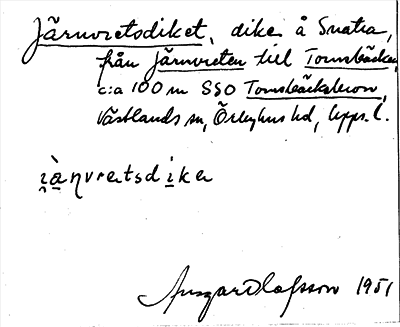 Järnvretsdiket, dike å Snatra,
från Järnvreten till Tomsbäcken,
c:a 100 m SSO Tomsbäcksbron,
Västlands sn, Örbyhus hd, Upps. l.
i̯à̠ɳvretsdi̠kə
Ansgar Olofsson 1951